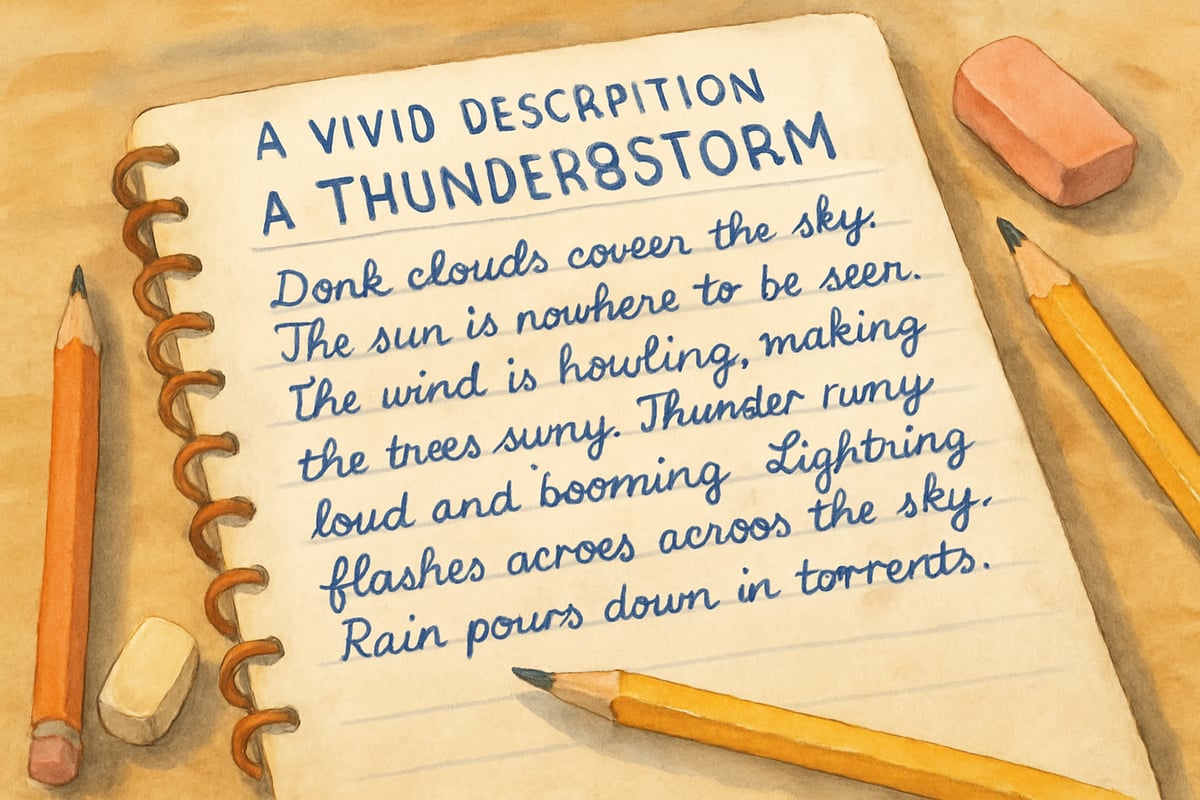 A VIVID DESCRPITION
A THUNDER8STORM
Donk clouds coveer the sky.
The sun is nowhere to be seen.
The wind is howling, making
the trees suny. Thunder rumy
loud and booming Lightning
flashes acroes acroos the sky.
Rain pours down in torrents.